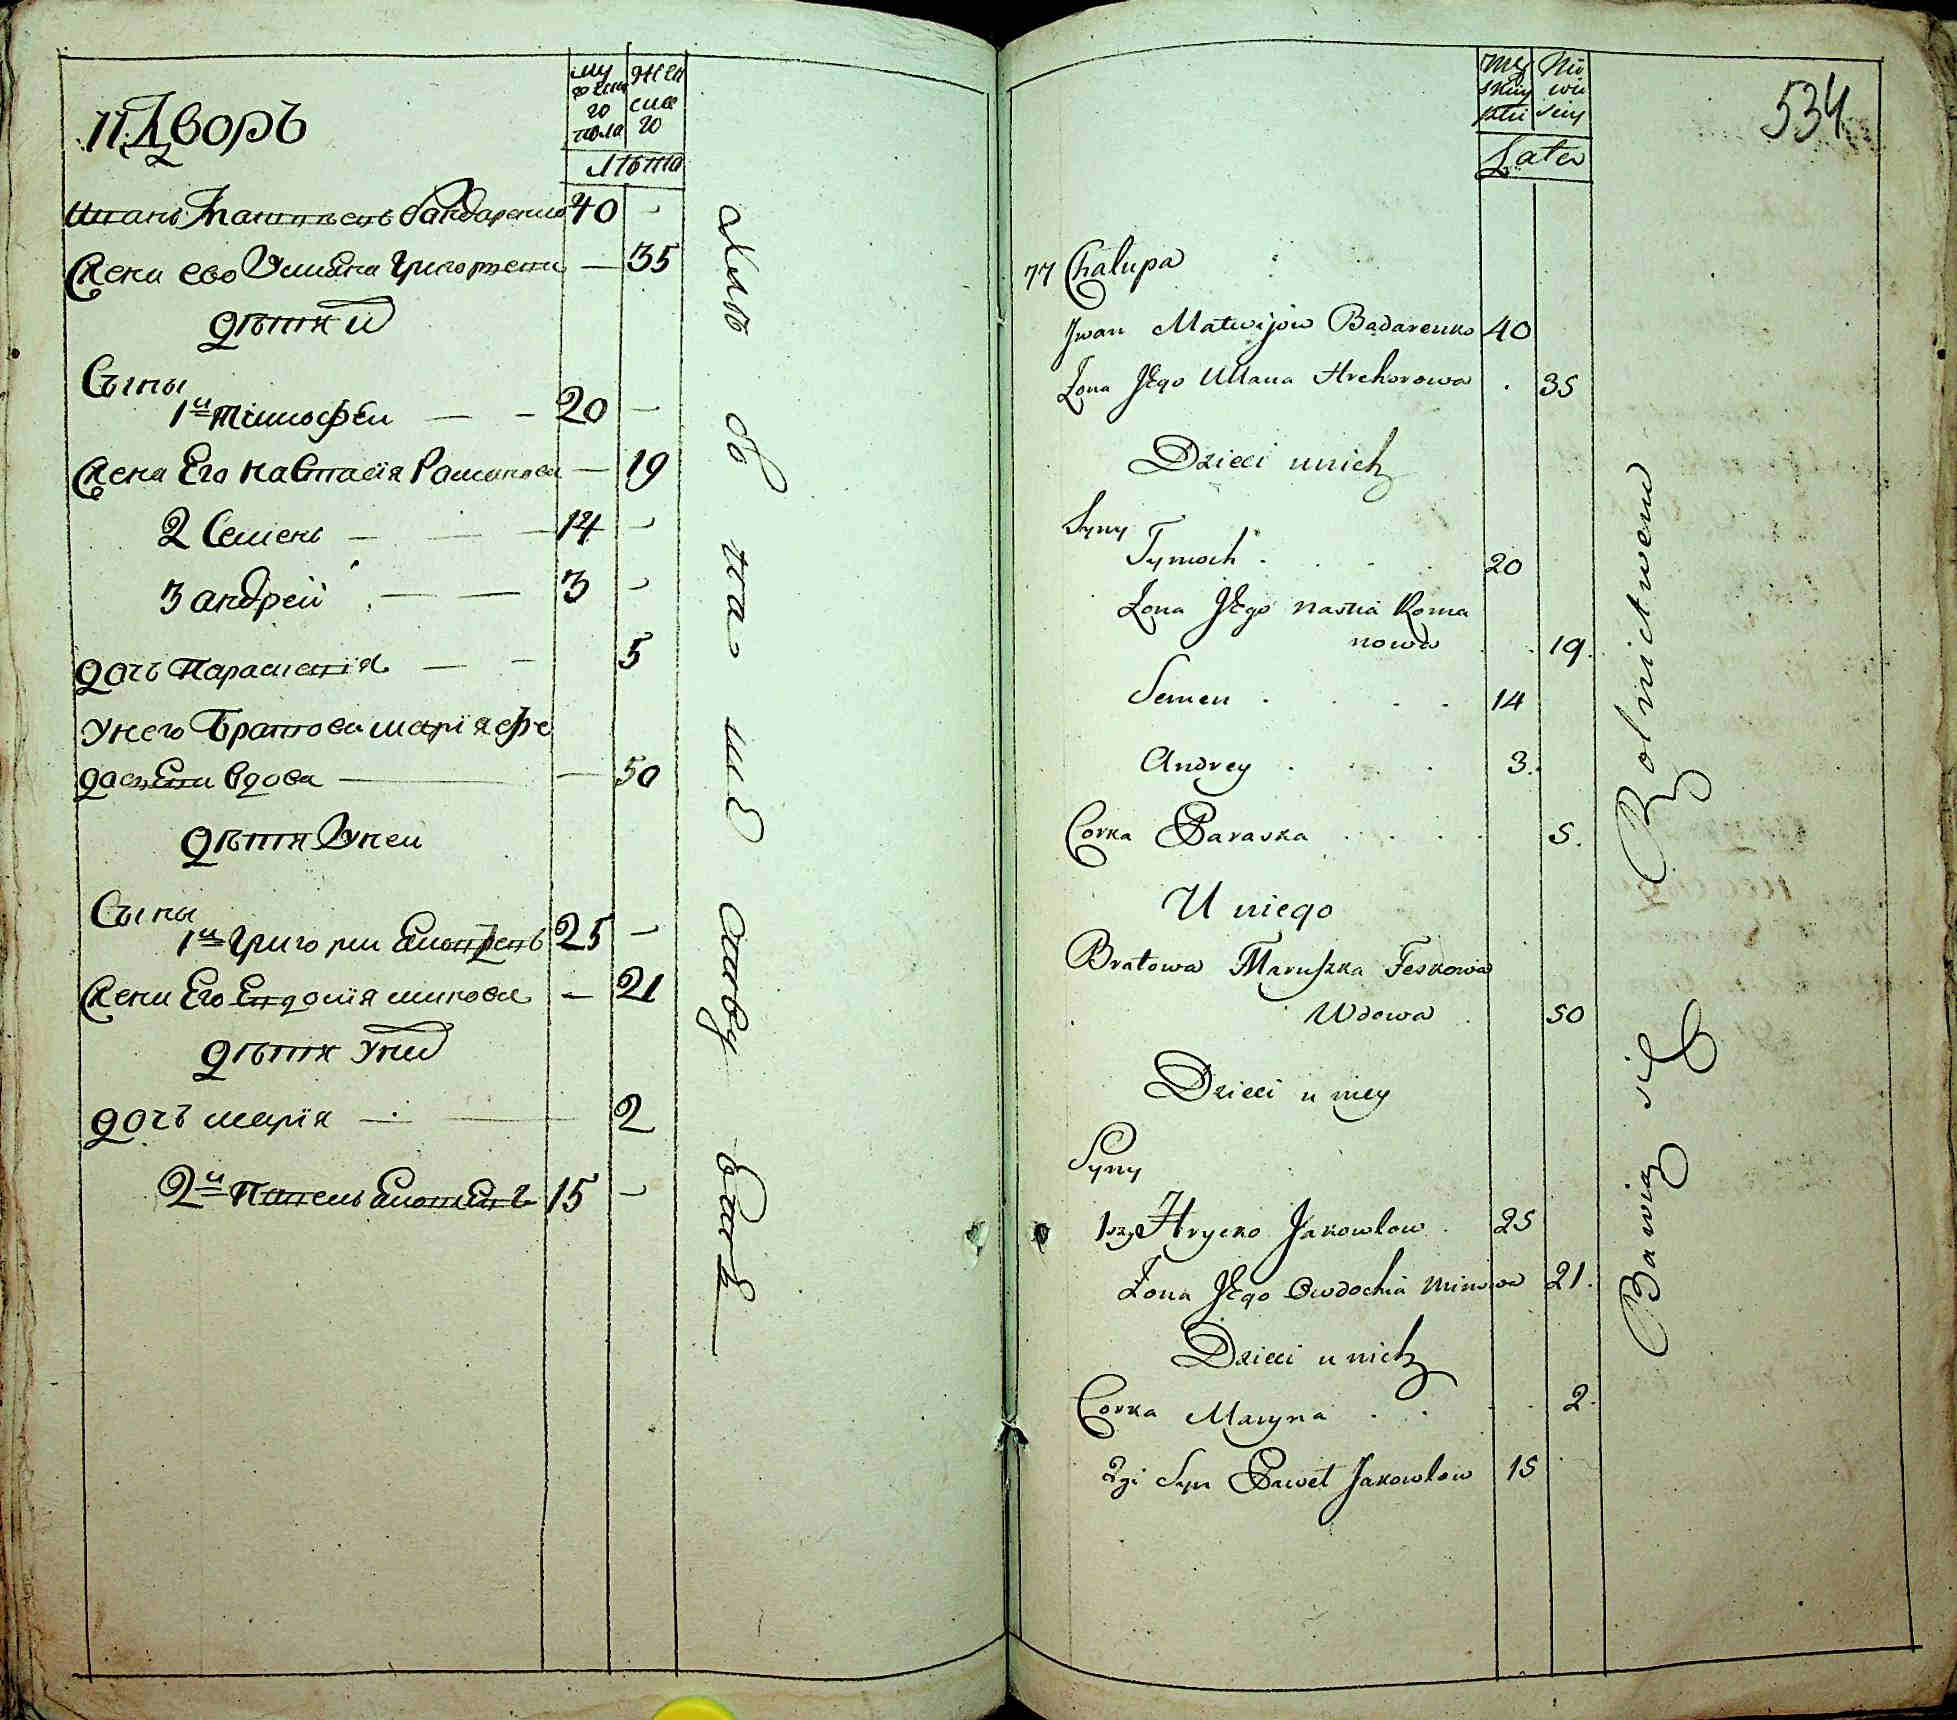 11. Дворъ
мужеска го пола
женска го
Лѣта
Иванъ Матвѣевъ Бандаренко 40 -
Жена ево Улияна Григорьева - 35
Дѣти и
Сыны
1й Тимофей - - 20 -
Жена Его Настасія Романова - 19
2 Семенъ - - - 14 -
3 андрей - - 3 -
дочь Парасковія - - 5
У него Братова марія Фе
досьева вдова - - 50
Дѣти У ней
Сыны
1й Григорий 25 -
Жена Его Евдокія минова - 21
Дѣти У них
дочь марія - - 2
2й Павелъ 15 -
534
Mę skiey płci
Nie wie sciey
Lata
77 Chalupa
Jwan Matwijow Bądarenko 40
Żona Jego Ullana Hrehorowa . 35
Dzieci u nich
Syny
Tymoch . . . . 20
Żona Jego Nastia Roma
nowa . . 19.
Semen . . . . 14
Andrey . . . 3.
Corka Paraska . . . . 5.
U niego
Bratowa Maruszka Feskowa
Wdowa . 50
Dzieci u niey
Syny
1szy Hrycko Jakowlow . 25
Żona Jego Owdochia Minowa 21.
Dzieci u nich
Corka Maryna . . . . 2.
2gi Syn Paweł Jakowlow 15
Bawią się Rolnictwem